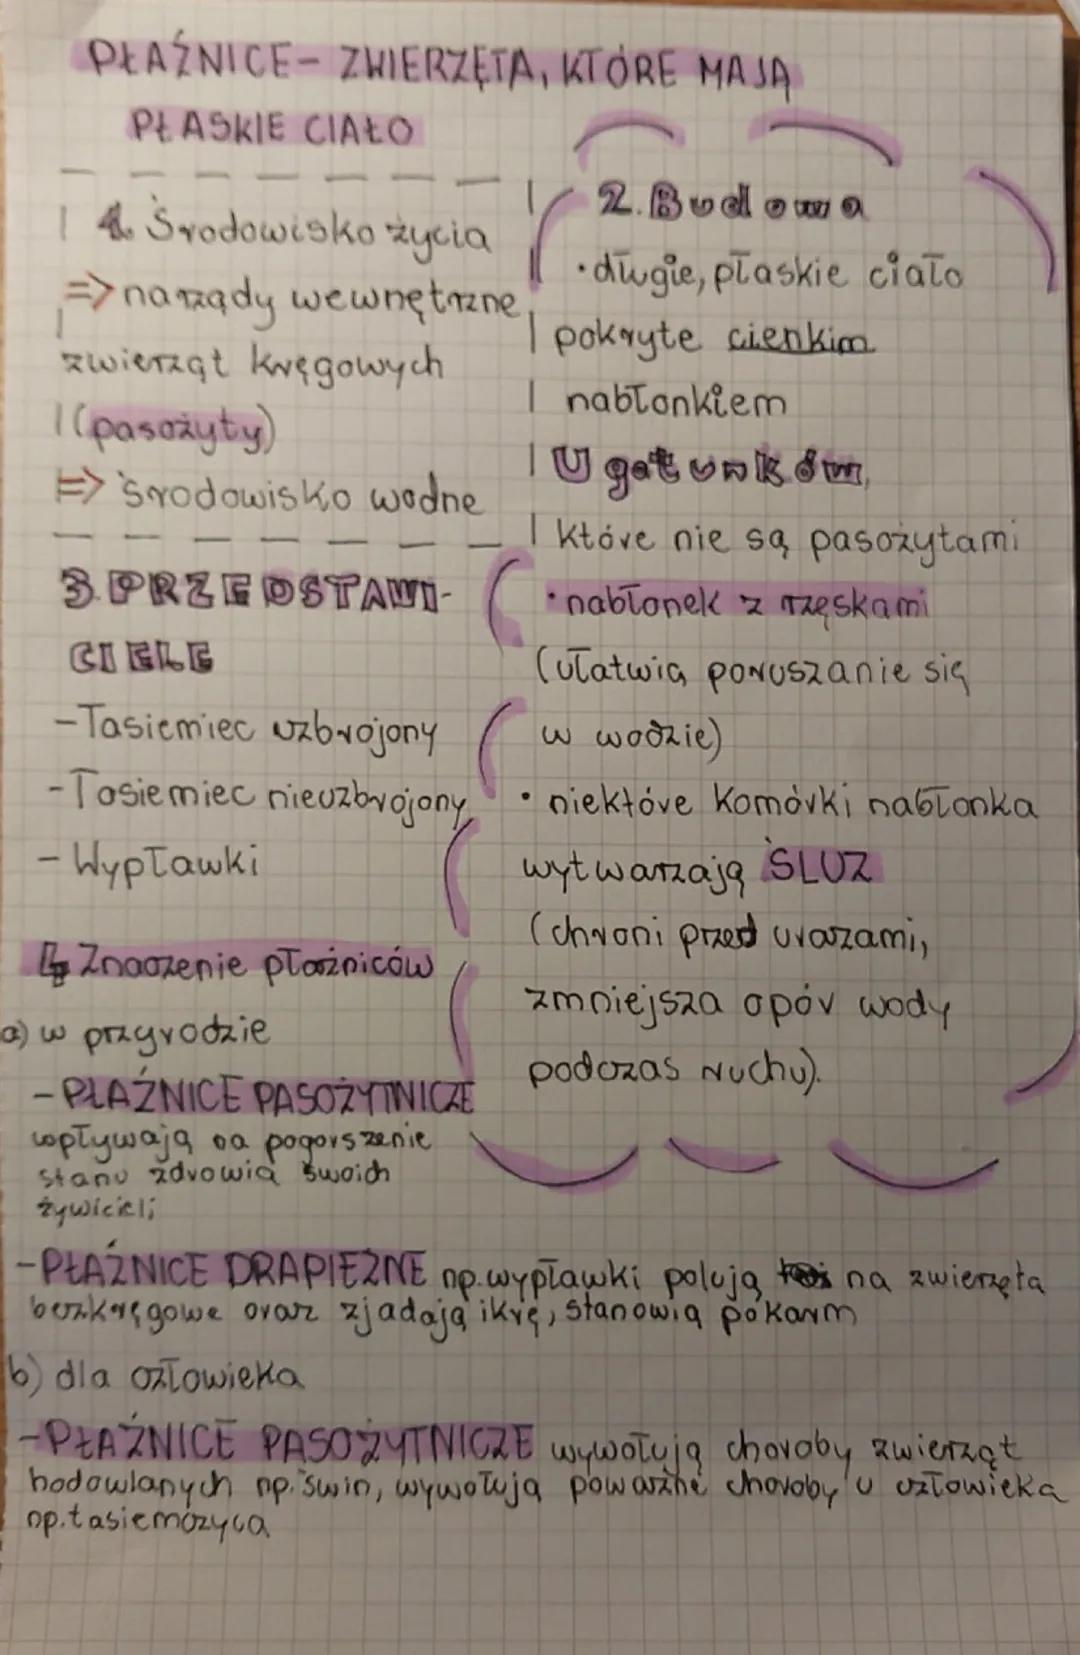 PŁAŹNICE- ZWIERZĘTA, KTÓRE MAJĄ
PŁASKIE CIAŁO
1. Środowisko życia
=> narządy wewnętrzne
zwierząt kręgowych
(pasożyty)
=> środowisko wodne
2. Budowa
•długie, płaskie ciało
pokryte cienkim
nabłonkiem
U gatunków,
które nie są pasożytami
•nabłonek z rzęskami
(ułatwią poruszanie się
w wodzie)
• niektóre komórki nabłonka
wytwarzają ŚLUZ
(chroni przed urazami,
zmniejsza opór wody
podczas ruchu).
3. PRZEDSTAWI-
CIELE
-Tasiemiec uzbrojony
-Tasiemiec nieuzbrojony
- Wypławki
4. Znaczenie płaźniców
a) w przyrodzie
- PŁAŹNICE PASOŻYTNICZE
wpływają na pogorszenie
stanu zdrowia swoich
żywicieli;
-PŁAŹNICE DRAPIEŻNE np. wypławki polują na zwierzęta
bezkręgowe oraz zjadają ikrę, stanowią pokarm
b) dla człowieka
-PŁAŹNICE PASOŻYTNICZE wywołują choroby zwierząt
hodowlanych np. świn, wywołują poważne choroby u człowieka
np. tasiemczyca